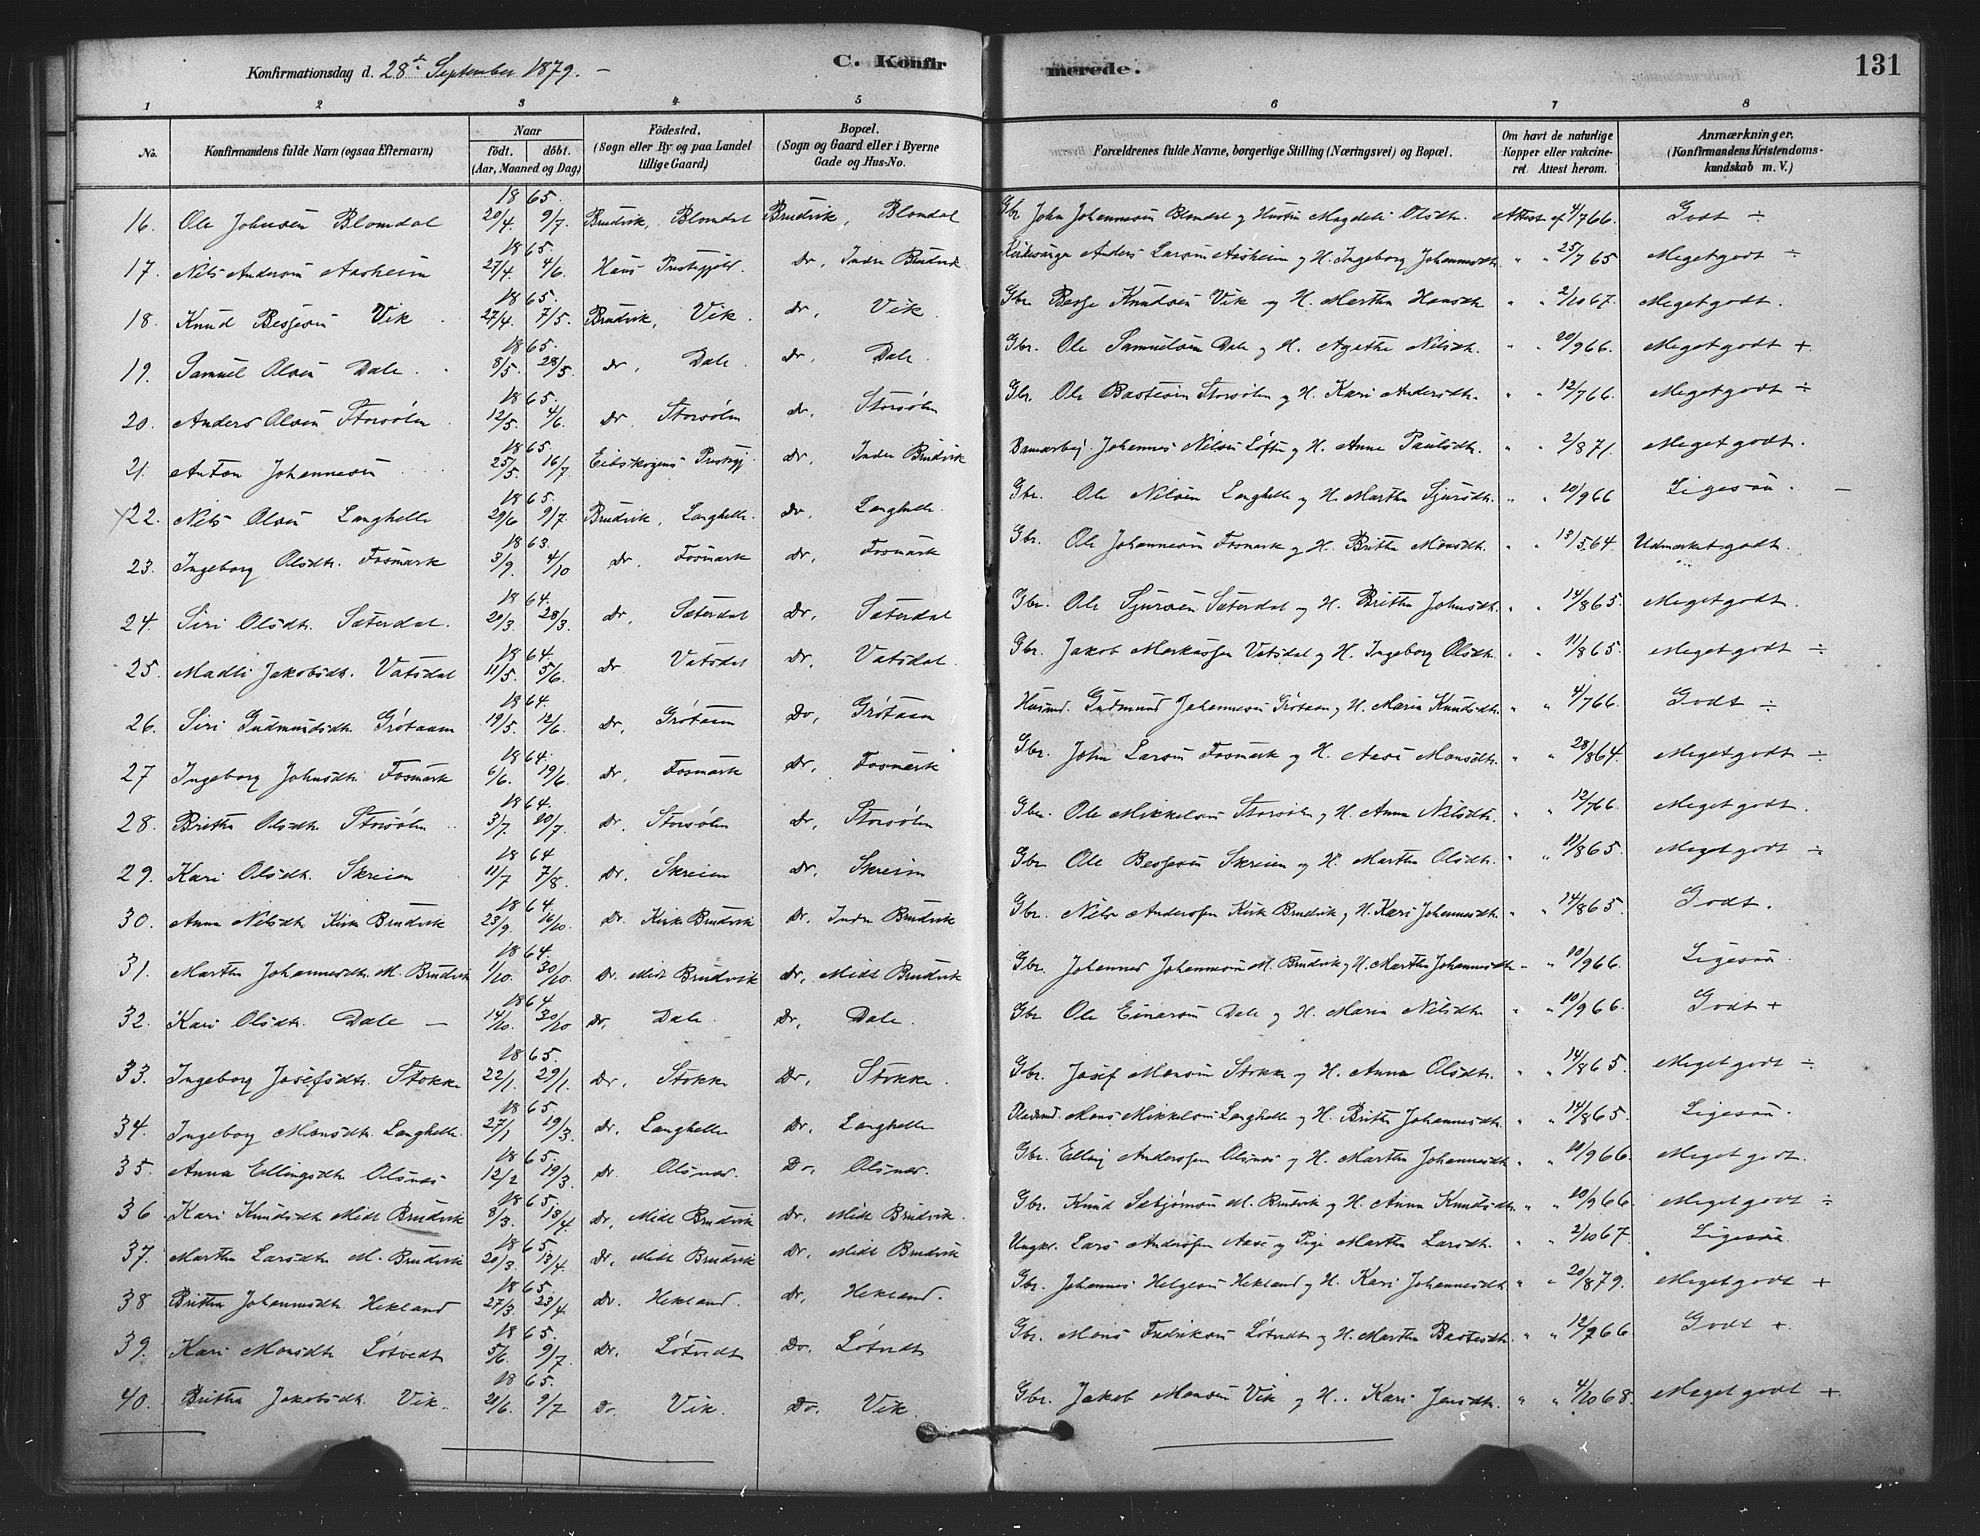 Konfirmationsdag d. 28de September 1879. –
C. Konfirmerede.
131
1 2 3 4 5 6 7 8
No.
Konfirmandens fulde Navn (ogsaa Efternavn)
Naar
födt. döbt.
(Aar, Maaned og Dag)
Födested.
(Sogn eller By og paa Landet
tillige Gaard)
Bopæl.
(Sogn og Gaard eller i Byerne
Gade og Hus-No.
Forældrenes fulde Navne, borgerlige Stilling (Næringsvei) og Bopæl.
Om havt de naturlige
Kopper eller vakcine-
ret. Attest herom.
Anmærkninger.
(Konfirmandens Kristendoms-
kundskab m. V.)
16. Ole Johnsen Blomdal 1865. 20/4. 9/7. Brudvik, Blomdal Brudvik, Blomdal Gbr. John Johannesen Blomdal og Hustru Magdeli Olsdtr. Attest af 4/7 66. Godt ÷
17. Nils Andersen Aasheim 1865. 27/4. 4/6. Haus Prestegjeld. Dr, Indre Brudvik. Kirkesanger Anders Larsen Aasheim og H. Ingeborg Johannesdtr. " " 25/7 65 Megetgodt ÷
18. Knud Besgesen Vik 1865. 27/4. 7/5. Brudvik, Vik. dr, Vik. Gbr. Besge Knudsen Vik og H. Martha Hansdtr " " 2/10 67. Megetgodt.
19. Samuel Olsen Dale. 1865. 8/5. 28/5. dr, Dale. dr. Dale. Gbr. Ole Samuelsen Dale og H. Agathe Nilsdtr. " " 20/9 66. Megetgodt +
20. Anders Olsen Storsølen 1865. 12/5. 4/6. dr, Storsølen dr. Storsølen Gbr. Ole Bastesen Storsølen og H. Kari Andersdtr. " " 12/7 66. Megetgodt ÷
21. Anton Johannesen 1865 25/5. 16/7. Eidskogens Prestegj. dr, Indre Brudvik Banearbej. Johannes Nilsen Løften og H. Anne Paulsdtr. " " 2/8 71. Megetgodt.
22. Nils Olsen Langhelle 1865. 29/6 9/7. Brudvik, Langhelle. dr, Langhelle. Gbr. Ole Nilsen Langhelle og H. Martha Sjursdtr. " " 10/9 66 Ligesaa. –
23. Ingeborg Olsdtr. Fosmark 1863. 3/9. 4/10 dr. Fosmark dr, Fosmark Gbr. Ole Johannesen Fosmark og H. Britha Monsdtr. " " 13/5 64. Udmærketgodt.
24. Siri Olsdtr. Sæterdal. 1864. 20/3. 28/3. dr, Sæterdal Dr, Sæterdal Gbr. Ole Sjursen Sæterdal og H. Britha Johnsdtr. " " 14/8 65. Megetgodt.
25. Madli Jakobsdtr. Vatsdal 1864. 11/5. 5/6. dr Vatsdal Dr, Vatsdal. Gbr. Jakob Markussen Vatsdal og H. Ingeborg Olsdtr. " " 11/8 65. Megetgodt ÷
26. Siri Gudmundsdtr. Grøtaaen 1864. 19/5. 12/6. Dr, Grøtaaen Do, Grøtaaen Husmd. Gudmund Johannesen Grøtaaen og H. Maria Knudsdtr. " " 4/7 66. Godt ÷
27 Ingeborg Johnsdtr. Fosmark 1864. 6/6. 19/6. Dr, Fosmark Dr. Fosmark Gbr. John Larsen Fosmark og H. Aase Monsdtr. " " 28/8 64. Megetgodt ÷
28. Britha Olsdtr. Storsølen 1864. 3/7 20/7. Dr. Storsølen Dr, Storsølen Gbr. Ole Mikkelsen Storsølen og H. Anna Nilsdtr. " " 12/7 66. Megetgodt.
29. Kari Olsdtr. Skreien 1864 11/7 7/8. Dr. Skreien Dr. Skreien Gbr. Ole Besgesen Skreien og H. Martha Olsdtr. " " 12/8 65. Megetgodt ÷
30. Anna Nilsdtr. Kirke Brudvik 1864 23/9. 16/10. Dr. Kirke Brudvik Dr. Indre Brudvik Gbr. Nils Andersen Kirke Brudvik og H. Kari Johannesdtr " " 14/8 65. Godt.
31. Martha Johannesdtr. M. Brudvik 1864. 1/10. 30/10. Dr. Midt Brudvik Dr, Midt Brudvik Gbr. Johannes Johannesen M. Brudvik og H. Martha Johannesdtr " " 10/9 66. Ligesaa.
32. Kari Olsdtr. Dale – 1864 14/10. 30/10 Dr, Dale. Dr, Dale. Gbr Ole Einarsen Dale og H. Maria Nilsdtr. " " 10/9 66. Godt +
33. Ingeborg Josefsdtr. Stokke 1865. 22/1. 29/1. Dr, Stokke Dr, Stokke. Gbr. Josef Monsen Stokke og H. Anna Olsdtr. " " 14/8 65. Megetgodt ÷
34. Ingeborg Monsdtr. Langhelle. 1865. 27/1 19/3. Dr, Langhelle Dr. Langhelle Pladsmd. Mons Mikkelsen Langhelle og H. Britha Johannesdtr. " " 14/8 65. Ligesaa.
35. Anna Ellingsdtr. Olsnæs 1865. 12/2 19/3. Dr. Olsnæs. Do, Olsnæs. Gbr. Elling Andersen Olsnæs og H. Martha Johannesdtr " " 10/9 66. Megetgodt.
36 Kari Knudsdtr. Midt Brudvik 1865. 8/3. 13/4. Dr, Midt Brudvik Dr. Midt Brudvik. Gbr. Knud Sebjørnsen M. Brudvik og H. Anna Knudsdtr " " 10/9 66 Megetgodt ÷
37. Martha Larsdtr. M. Brudvik 1865. 20/3. 13/4. Dr, Midt Brudvik Dr. Midt Brudvik Ungkr. Lars Andersen Aase og Pige Martha Larsdtr. " " 2/10 67. Ligesaa
38 Britha Johannesdtr. Hekland 1865. 27/3. 23/4. Dr. Hekland. dr, Hekland. Gbr. Johannes Helgesen Hekland og H. Kari Johannesdtr. " " 20/8 79. Megetgodt +
39. Kari Monsdtr Løtvedt 1865. 5/6. 9/7. Dr. Løtvedt Do. Løtvedt Gbr. Mons Fredriksen Løtvedt og H. Martha Bastesdtr. " " 12/7 66 Godt +
40. Britha Jakobsdtr. Vik. 1865. 21/6. 9/7 Do Vik. Do. Vik. Gbr. Jakob Monsen Vik og H. Kari Jensdtr. " " 4/10 68. Megetgodt +